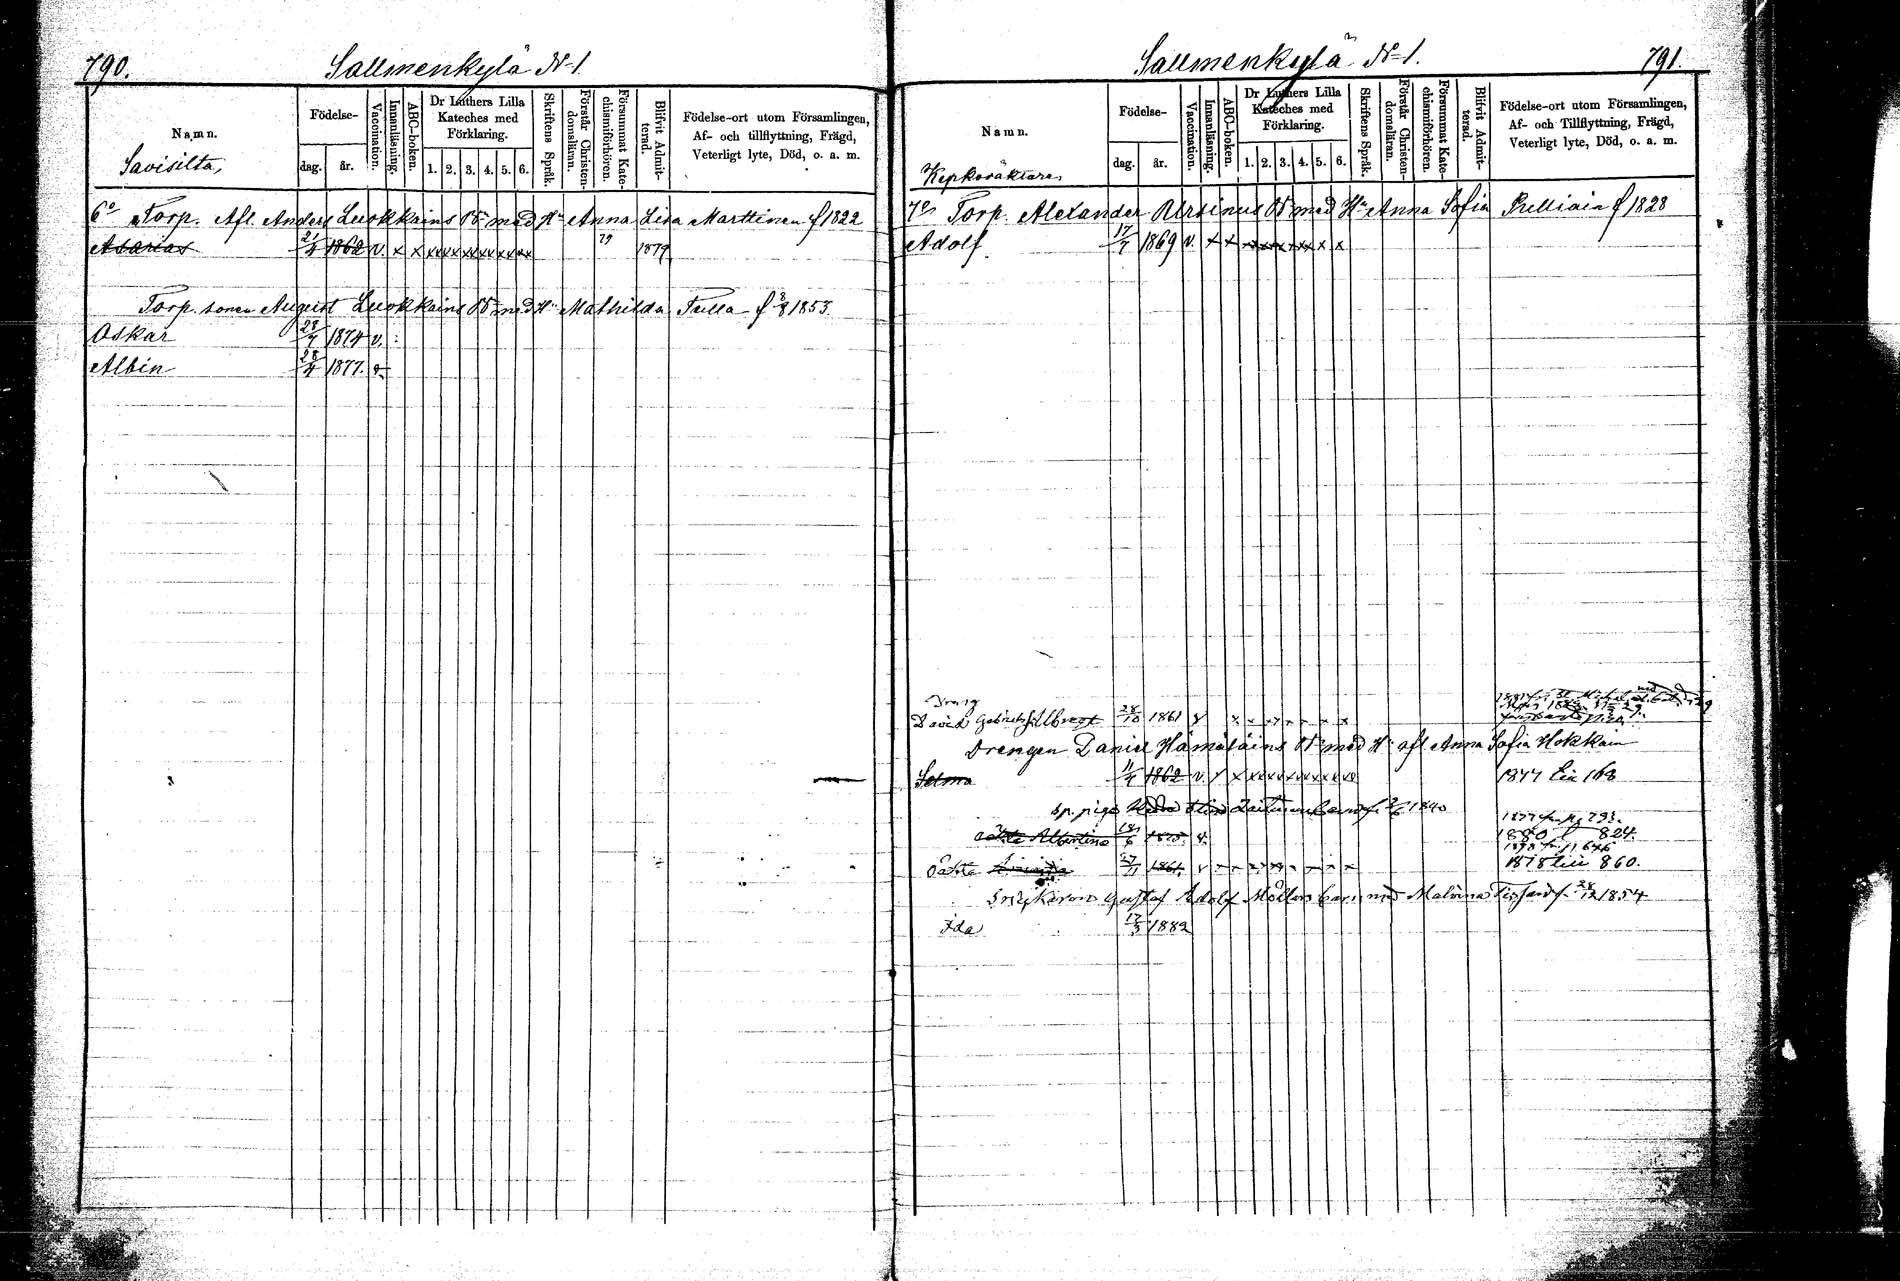 790.
Sallmenkylä N:1
Namn.
Savisilta,
Födelse-
dag.
år.
Vaccination.
Innanläsning.
ABC-boken.
Dr Luthers Lilla
Kateches med
Förklaring.
1. 2. 3. 4. 5. 6.
Skriftens Språk.
Förstår Christen-
domsläran.
Försummat Kate-
chismiförhören.
Blifvit Admit-
terad.
Födelse-ort utom Församlingen,
Af- och tillflyttning, Frägd,
Veterligt lyte, Död, o. a. m.
6o Torp. Afl. Anders Luokkains Bn med Hu Anna Lisa Marttinen f 1822
Asarias 21/4 1862 v. x x xxxx xxxx xx xx 79 1879
Torp. sonen August Luokkains Bn med Hu Mathilda Tulla f 3/8 1853
Oskar 28/7 1874 v.
Albin 28/4 1877. v.
791.
Sallmenkylä N:1.
Namn.
Kepkoräktare,
Födelse-
dag.
år.
Vaccination.
Innanläsning.
ABC-boken.
Dr Luthers Lilla
Kateches med
Förklaring.
1. 2. 3. 4. 5. 6.
Skriftens Språk.
Förstår Christen-
domsläran.
Försummat Kate-
chismiförhören.
Blifvit Admit-
terad.
Födelse-ort utom Församlingen,
Af- och Tillflyttning, Frägd,
Veterligt lyte, Död, o. a. m.
7o Torp. Alexander Ursinus Bn med Hu Anna Sofia Pulliain f 1828
Adolf 17/7 1869 v. x x
Dreng
David 28/10 1861 v
Drengen Daniel Hämäläins Bn med Hu afl Anna Sofia Hokkain
Selma 11/4 1862 v x x xxxxxxxxxx 1877 lia 168
sp. piga 1840
1877 fr. p. 793.
oäkta Albertina 18/6 1875 v. 1880 824.
1878 fr. p 646
oäkta 27/11 1861 v 1878 lia 860.
Gustaf Adolf Möllers barn med Malvina f. 28/12 1854
Ida 17/3 1882